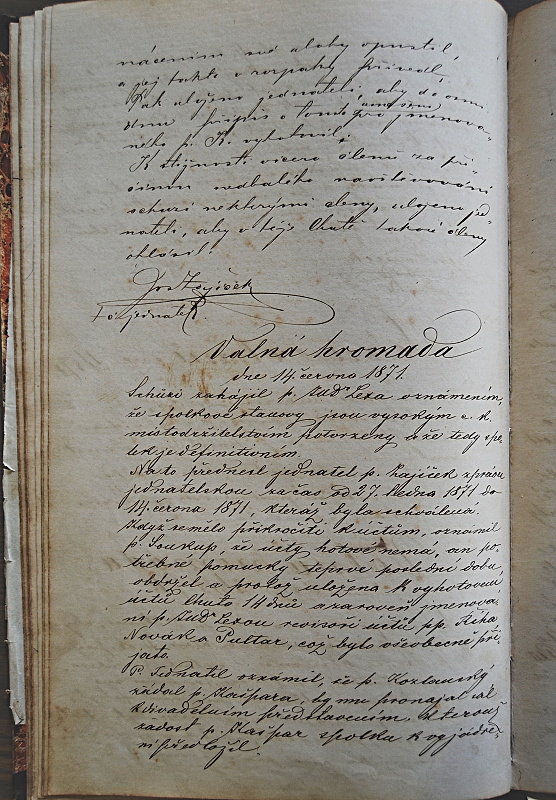 nácením své úlohy opustil,
a jej takto v rozpaky přivedl.
Pak uloženo jednateli, aby do osmi
dnů přípis o tomto pro jmenova-
ného p. K. vyhotovil.
K stížnosti vícero členů za pří-
činou nedbalého navštěvování
schůzí některými členy, uloženo jed-
nateli, aby v též lhůtě takové členy
ohlásil.
t. č. jednatel.
Valná hromada
dne 14. června 1871.
Schůzi zahájil p. JUDr Lexa oznámením,
že spolkové stanovy jsou vysokým c. k.
místodržitelstvím potvrzeny a že tedy spo-
lek je definitivním.
Na to přednesl jednatel p. Zajíček zprávu
jednatelskou za čas od 27. ledna 1871 do
14. června 1871, kteráž byla schválena.
Když se mělo přikročiti k účtům, oznámil
p. Soukup, že účty hotové nemá, an po-
třebné pomůcky teprvé poslední dobu
obdržel a protož uložena k vyhotovení
účtů lhůta 14 dnů a zároveň jmenova-
ni p. JUDr Lexou revisoři účtů pp. Říha
Novák a Pultar, což bylo všeobecně při-
jato.
P. Jednatel oznámil, že p. Kozlanský
žádal p. Kašpara, by mu pronajal sál
k divadelním představením. Kterouž
žádost p. Kašpar spolku k vyjádře-
ní předložil.